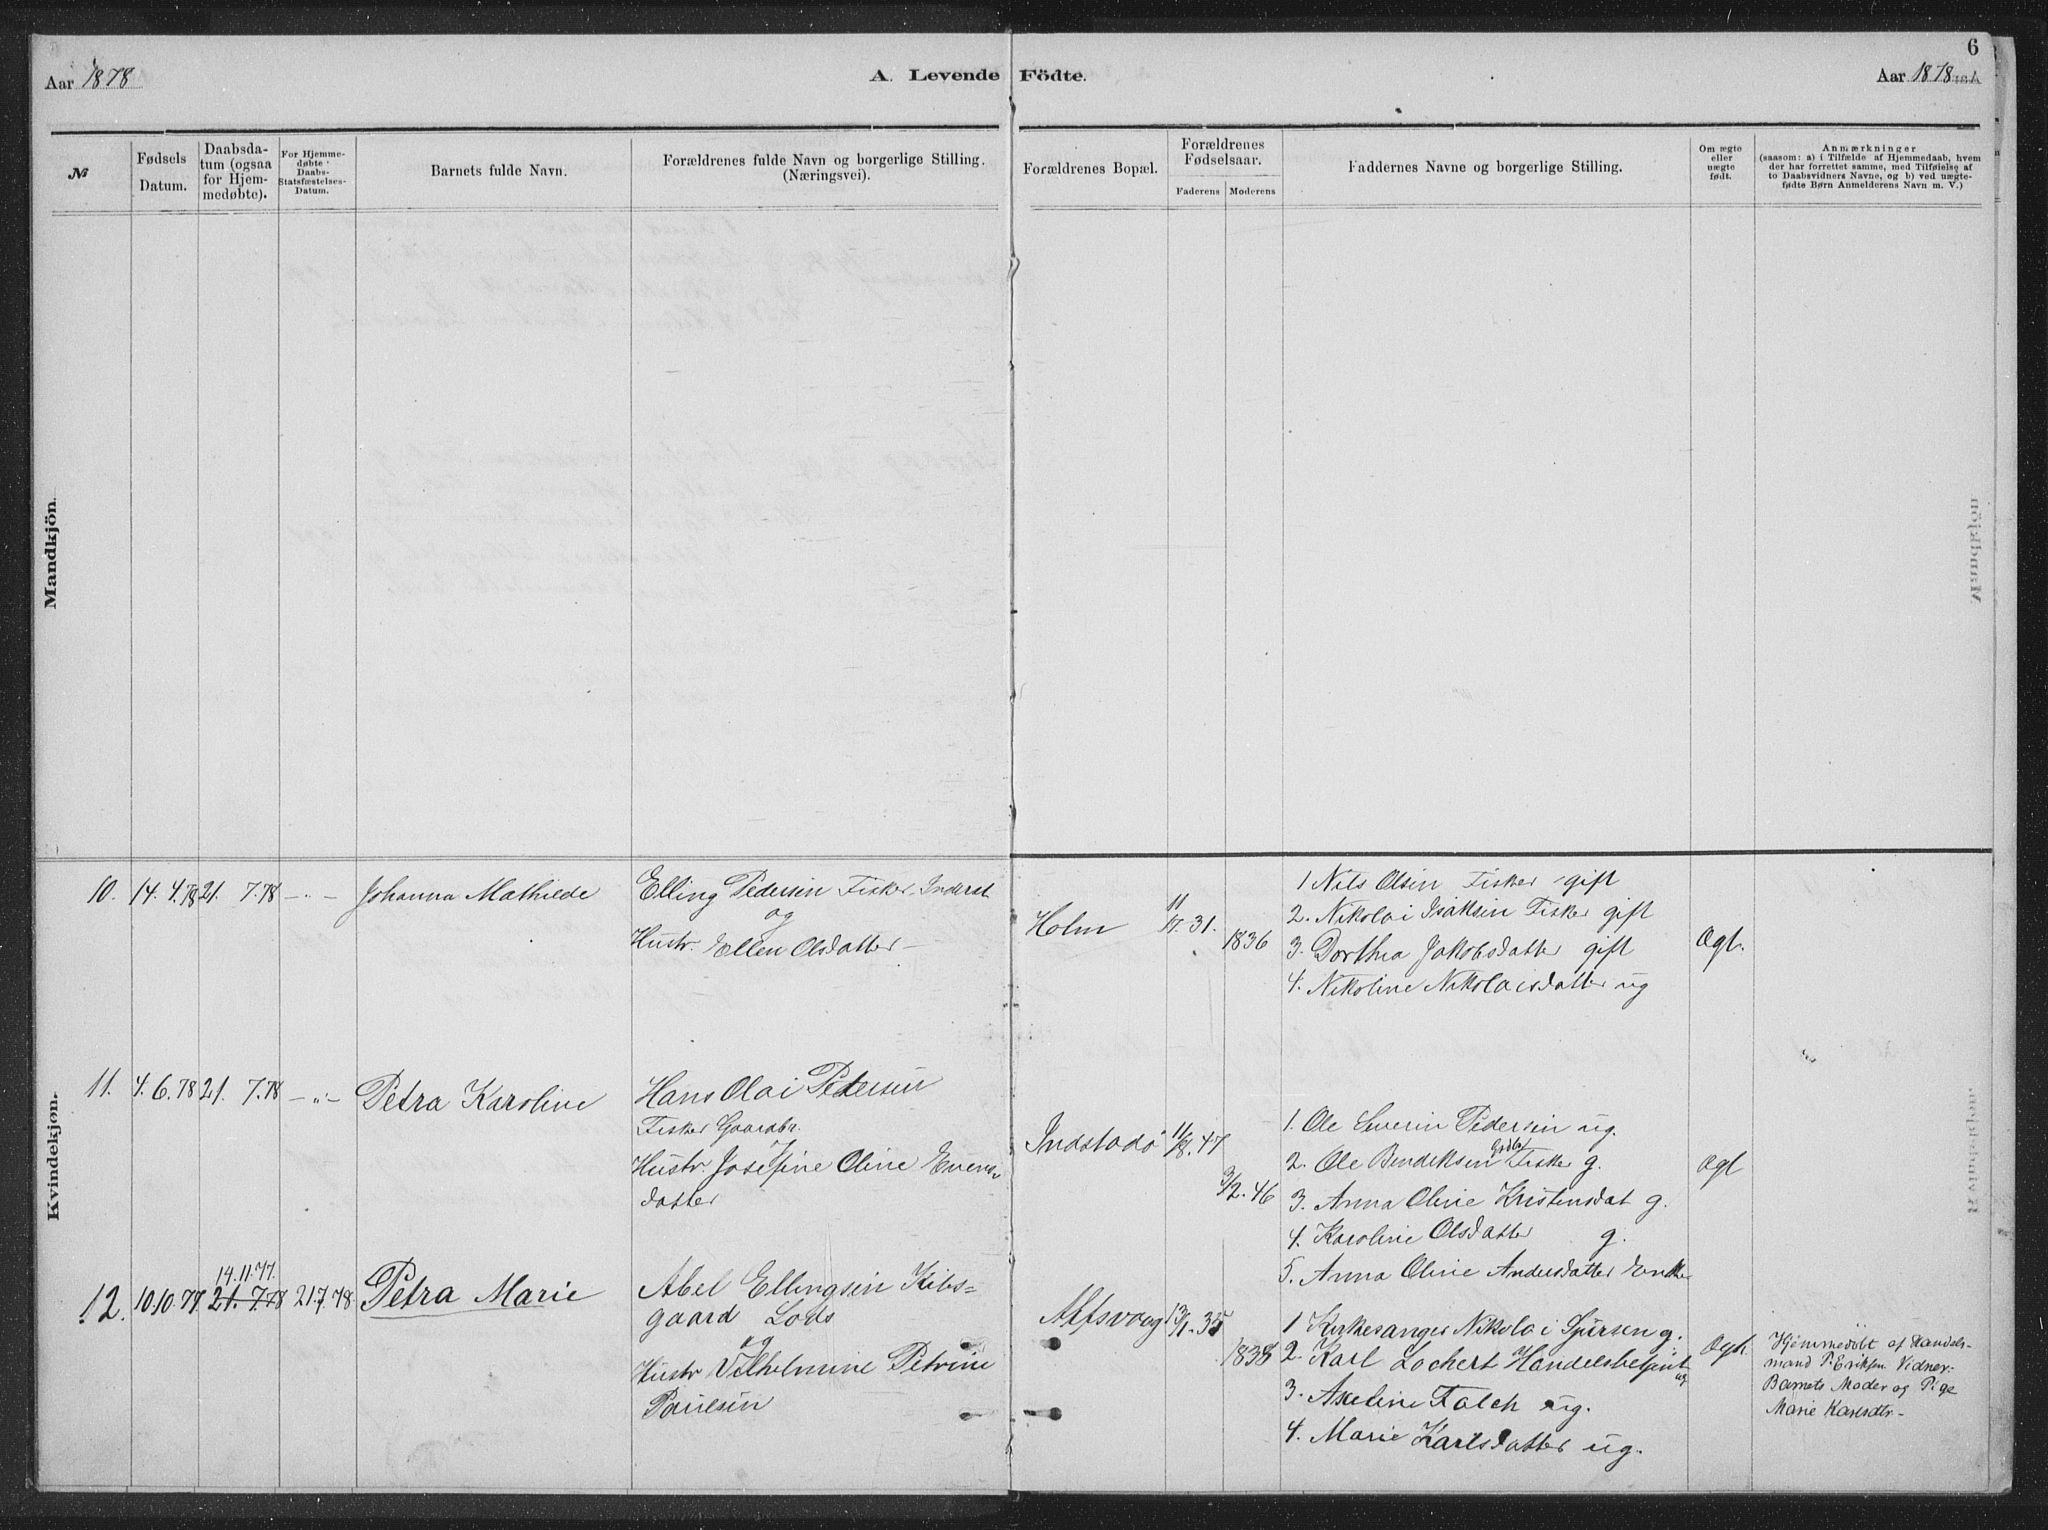 6
Aar 1878
A. Levende Födte.
Aar 1878
№
Fødsels Datum.
Daabsda-
tum (ogsaa
for Hjem-
medøbte).
For Hjemme-
døbte
Daabs-
Statsfæstelses-
Datum.
Barnets fulde Navn.
Forældrenes fulde Navn og borgerlige Stilling.
(Næringsvei).
Forældrenes Bopæl.
Forældrenes
Fødselsaar.
Faderens
Moderens
Faddernes Navne og borgerlige Stilling.
Om ægte
eller
uægte
født.
Anmærkninger
(saasom: a) i Tilfælde af Hjemmedaab, hvem
der har forrettet samme, med Tilføielse af
to Daabsvidners Navne, og b) ved uægte-
fødte Børn Anmelderens Navn m. V.)
Mandkjön.
Kvindekjøn.
10. 14. 4. 78 21. 7. 78 – " – Johanna Mathilde
Elling Pedersen Fisker Inderst
og
Hustr. Ellen Olsdatter –
Holm
11/ . 31.
1836
1 Nils Olsen Fisker gift
2. Nikolai Isaksen Fisker gift
3. Dorthea Jakobsdatter gift
4. Nikoline Nikolaisdatter ug
Ægt.
11. 4. 6. 78 21. 7. 78 – " – Petra Karoline
Hans Olai Pedersen
Fisker Gaardbr.
Hustr. Josefine Oline Evens-
datter
Indstadø
11/8. 47
3/2. 46
1. Ole Severin Pedersen ug.
2. Ole Bendiksen Grdbr Fisker g.
3. Anna Oline Kristensdat g.
4. Karoline Olsdatter g.
5. Anna Oline Andersdatter Enke
Ægt
12. 10. 10. 77 14. 11. 77. 21. 7. 78 21 7. 78. Petra Marie
Abel Ellingsen Kibs-
gaard Lods
og
Hustr Vilhelmine Petrine
Paulsen
Alfsvaag
13/1. 35
1838
1 Kirkesanger Nikolai Sjursen g.
2. Karl Lochert Handelsbetjent ug
3. Axeline Falch ug.
4. Marie Karlsdatter ug.
Ægt.
Hjemmedöbt af Handels-
mand P. Eriksen Vidner-
Barnets Moder og Pige
Marie Karlsdtr –